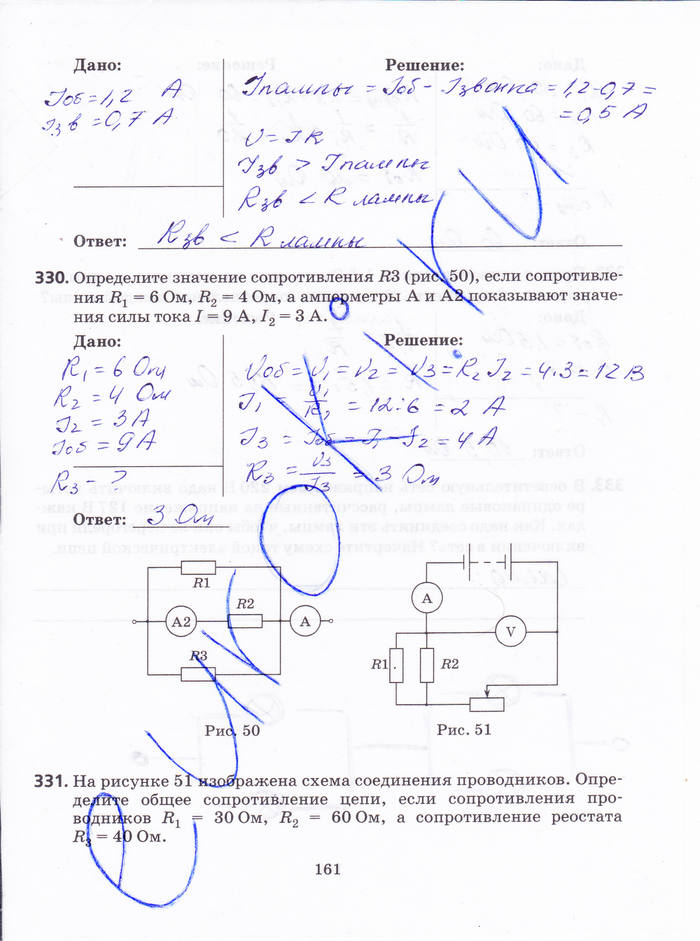 Дано:
Решение:
Iоб = 1,2 А
Iзв = 0,7 А
Iлампы = Iоб - Iзвонка = 1,2 - 0,7 =
= 0,5 А
U = IR
Iзв > Iлампы
Rзв < R лампы
Ответ: Rзв < R лампы
330. Определите значение сопротивления R3 (рис. 50), если сопротивле-
ния R1 = 6 Ом, R2 = 4 Ом, а амперметры А и А2 показывают значе-
ния силы тока I = 9 А, I2 = 3 А.
Дано:
Решение:
R1 = 6 Ом
R2 = 4 Ом
I2 = 3 А
Iоб = 9 А
R3 - ?
Uоб = U1 = U2 = U3 = R2 I2 = 4·3 = 12 В
I1 = = 12:6 = 2 А
I3 = Iоб - I1 - I2 = 4 А
R3 = U3/I3 = 3 Ом
Ответ: 3 Ом
R1
A2
R2
A
R3
Рис. 50
A
V
R1
R2
Рис. 51
331. На рисунке 51 изображена схема соединения проводников. Опре-
делите общее сопротивление цепи, если сопротивления про-
водников R1 = 30 Ом, R2 = 60 Ом, а сопротивление реостата
R3 = 40 Ом.
161